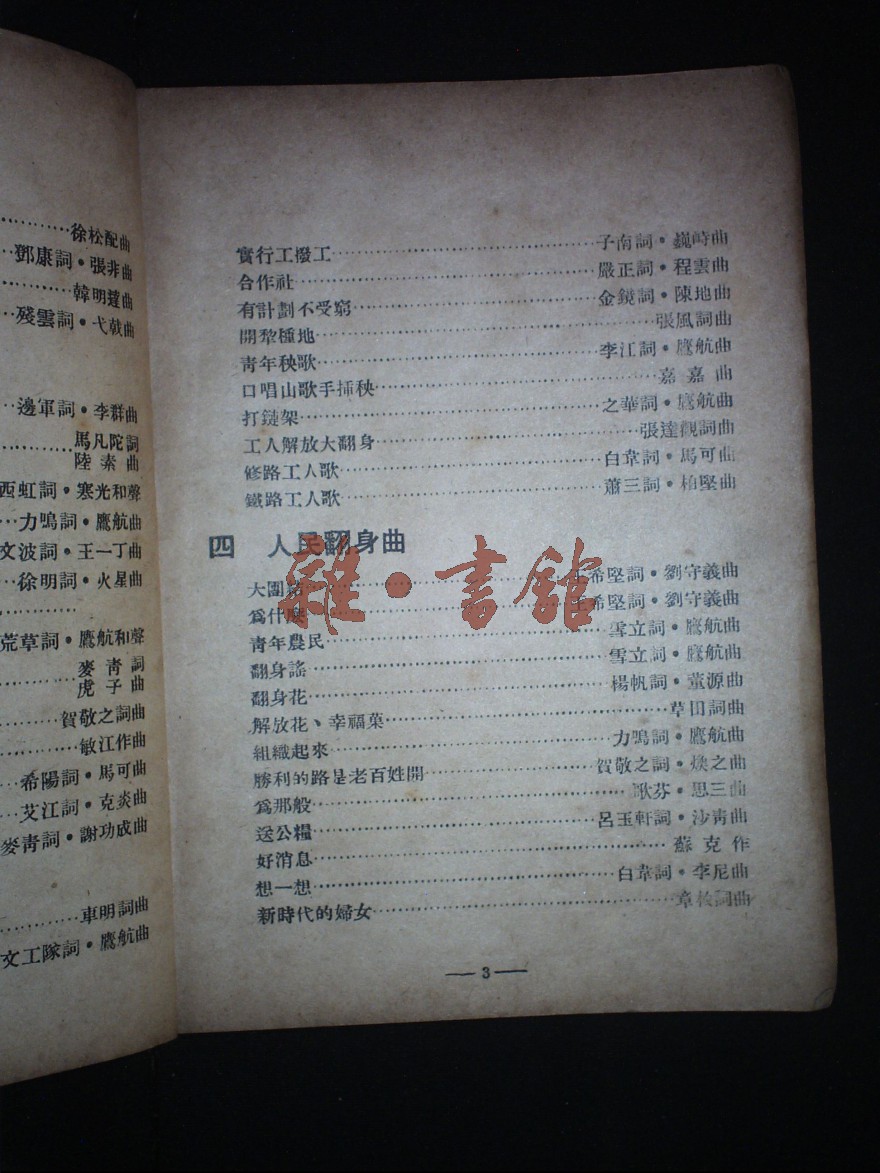 徐松配曲
鄧康詞·張非曲
韓明達曲
殘雲詞·弋戟曲
邊軍詞·李群曲
馬凡陀詞
陸素曲
西虹詞·寒光和聲
力鳴詞·鷹航曲
文波詞·王一丁曲
徐明詞·火星曲
荒草詞·鷹航和聲
麥青詞
虎子曲
賀敬之詞曲
敏江作曲
希陽詞·馬可曲
艾江詞·克炎曲
麥青詞·謝功成曲
車明詞曲
文工隊詞·鷹航曲
實行工撥工……子南詞·巍峙曲
合作社……嚴正詞·程雲曲
有計劃不受窮……金鏡詞·陳地曲
開犂種地……張風詞曲
青年秧歌……李江詞·鷹航曲
口唱山歌手插秧……嘉嘉曲
打鏈架……之華詞·鷹航曲
工人解放大翻身……張達觀詞曲
修路工人歌……白韋詞·馬可曲
鐵路工人歌……蕭三詞·柏堅曲
四 人民翻身曲
大團結……王希堅詞·劉守義曲
為什麼……王希堅詞·劉守義曲
青年農民……雪立詞·鷹航曲
翻身謠……雪立詞·鷹航曲
翻身花……楊帆詞·董源曲
解放花、幸福菓……草田詞曲
組織起來……力鳴詞·鷹航曲
勝利的路是老百姓開……賀敬之詞·煥之曲
為那般……歌芬·思三曲
送公糧……呂玉軒詞·沙青曲
好消息……蘇克作
想一想……白韋詞·李尼曲
新時代的婦女……章枚詞曲
—3—
雜·書館